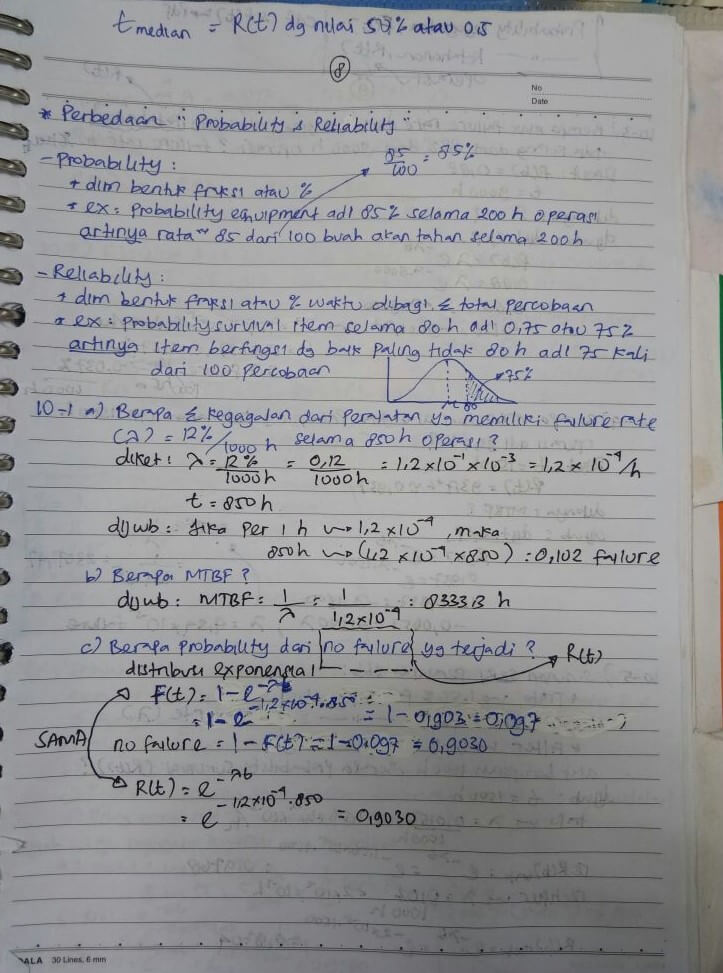 t median = R(t) dg nilai 50% atau 0,5
8
No
Date
* Perbedaan "Probability & Reliability"
- Probability :
+ dlm bentuk fraksi atau %
85/100 = 85%
+ ex : Probability equipment adl 85% selama 200 h operasi
artinya rata" 85 dari 100 buah akan tahan selama 200 h
- Reliability :
+ dlm bentuk fraksi atau % waktu dibagi Σ total percobaan
+ ex : Probability survival item selama 80 h adl 0,75 atau 75%
artinya item berfungsi dg baik paling tidak 80 h adl 75 kali
dari 100 percobaan
75%
μ 80
10-1 a) Berapa Σ kegagalan dari peralatan yg memiliki failure rate
(λ) = 12%/1000 h selama 850 h operasi ?
diket : λ = 12%/1000h = 0,12/1000h = 1,2 x 10⁻¹ x 10⁻³ = 1,2 x 10⁻⁴/h
t = 850 h
dijwb : Jika per 1 h ~> 1,2 x 10⁻⁴, maka
850h ~> (1,2 x 10⁻⁴ x 850) = 0,102 failure
b) Berapa MTBF ?
dijwb : MTBF = 1/λ = 1/1,2x10⁻⁴ = 8333,3 h
c) Berapa probability dari no failure yg terjadi ?
R(t)
distribusi exponensial
F(t) = 1 - e^-λt
= 1 - e^-1,2x10⁻⁴.850 = 1 - 0,903 = 0,097
SAMA
no failure = 1 - F(t) = 1 - 0,097 = 0,9030
R(t) = e^-λt
= e^-1,2x10⁻⁴.850 = 0,9030
ALA 30 Lines, 6 mm